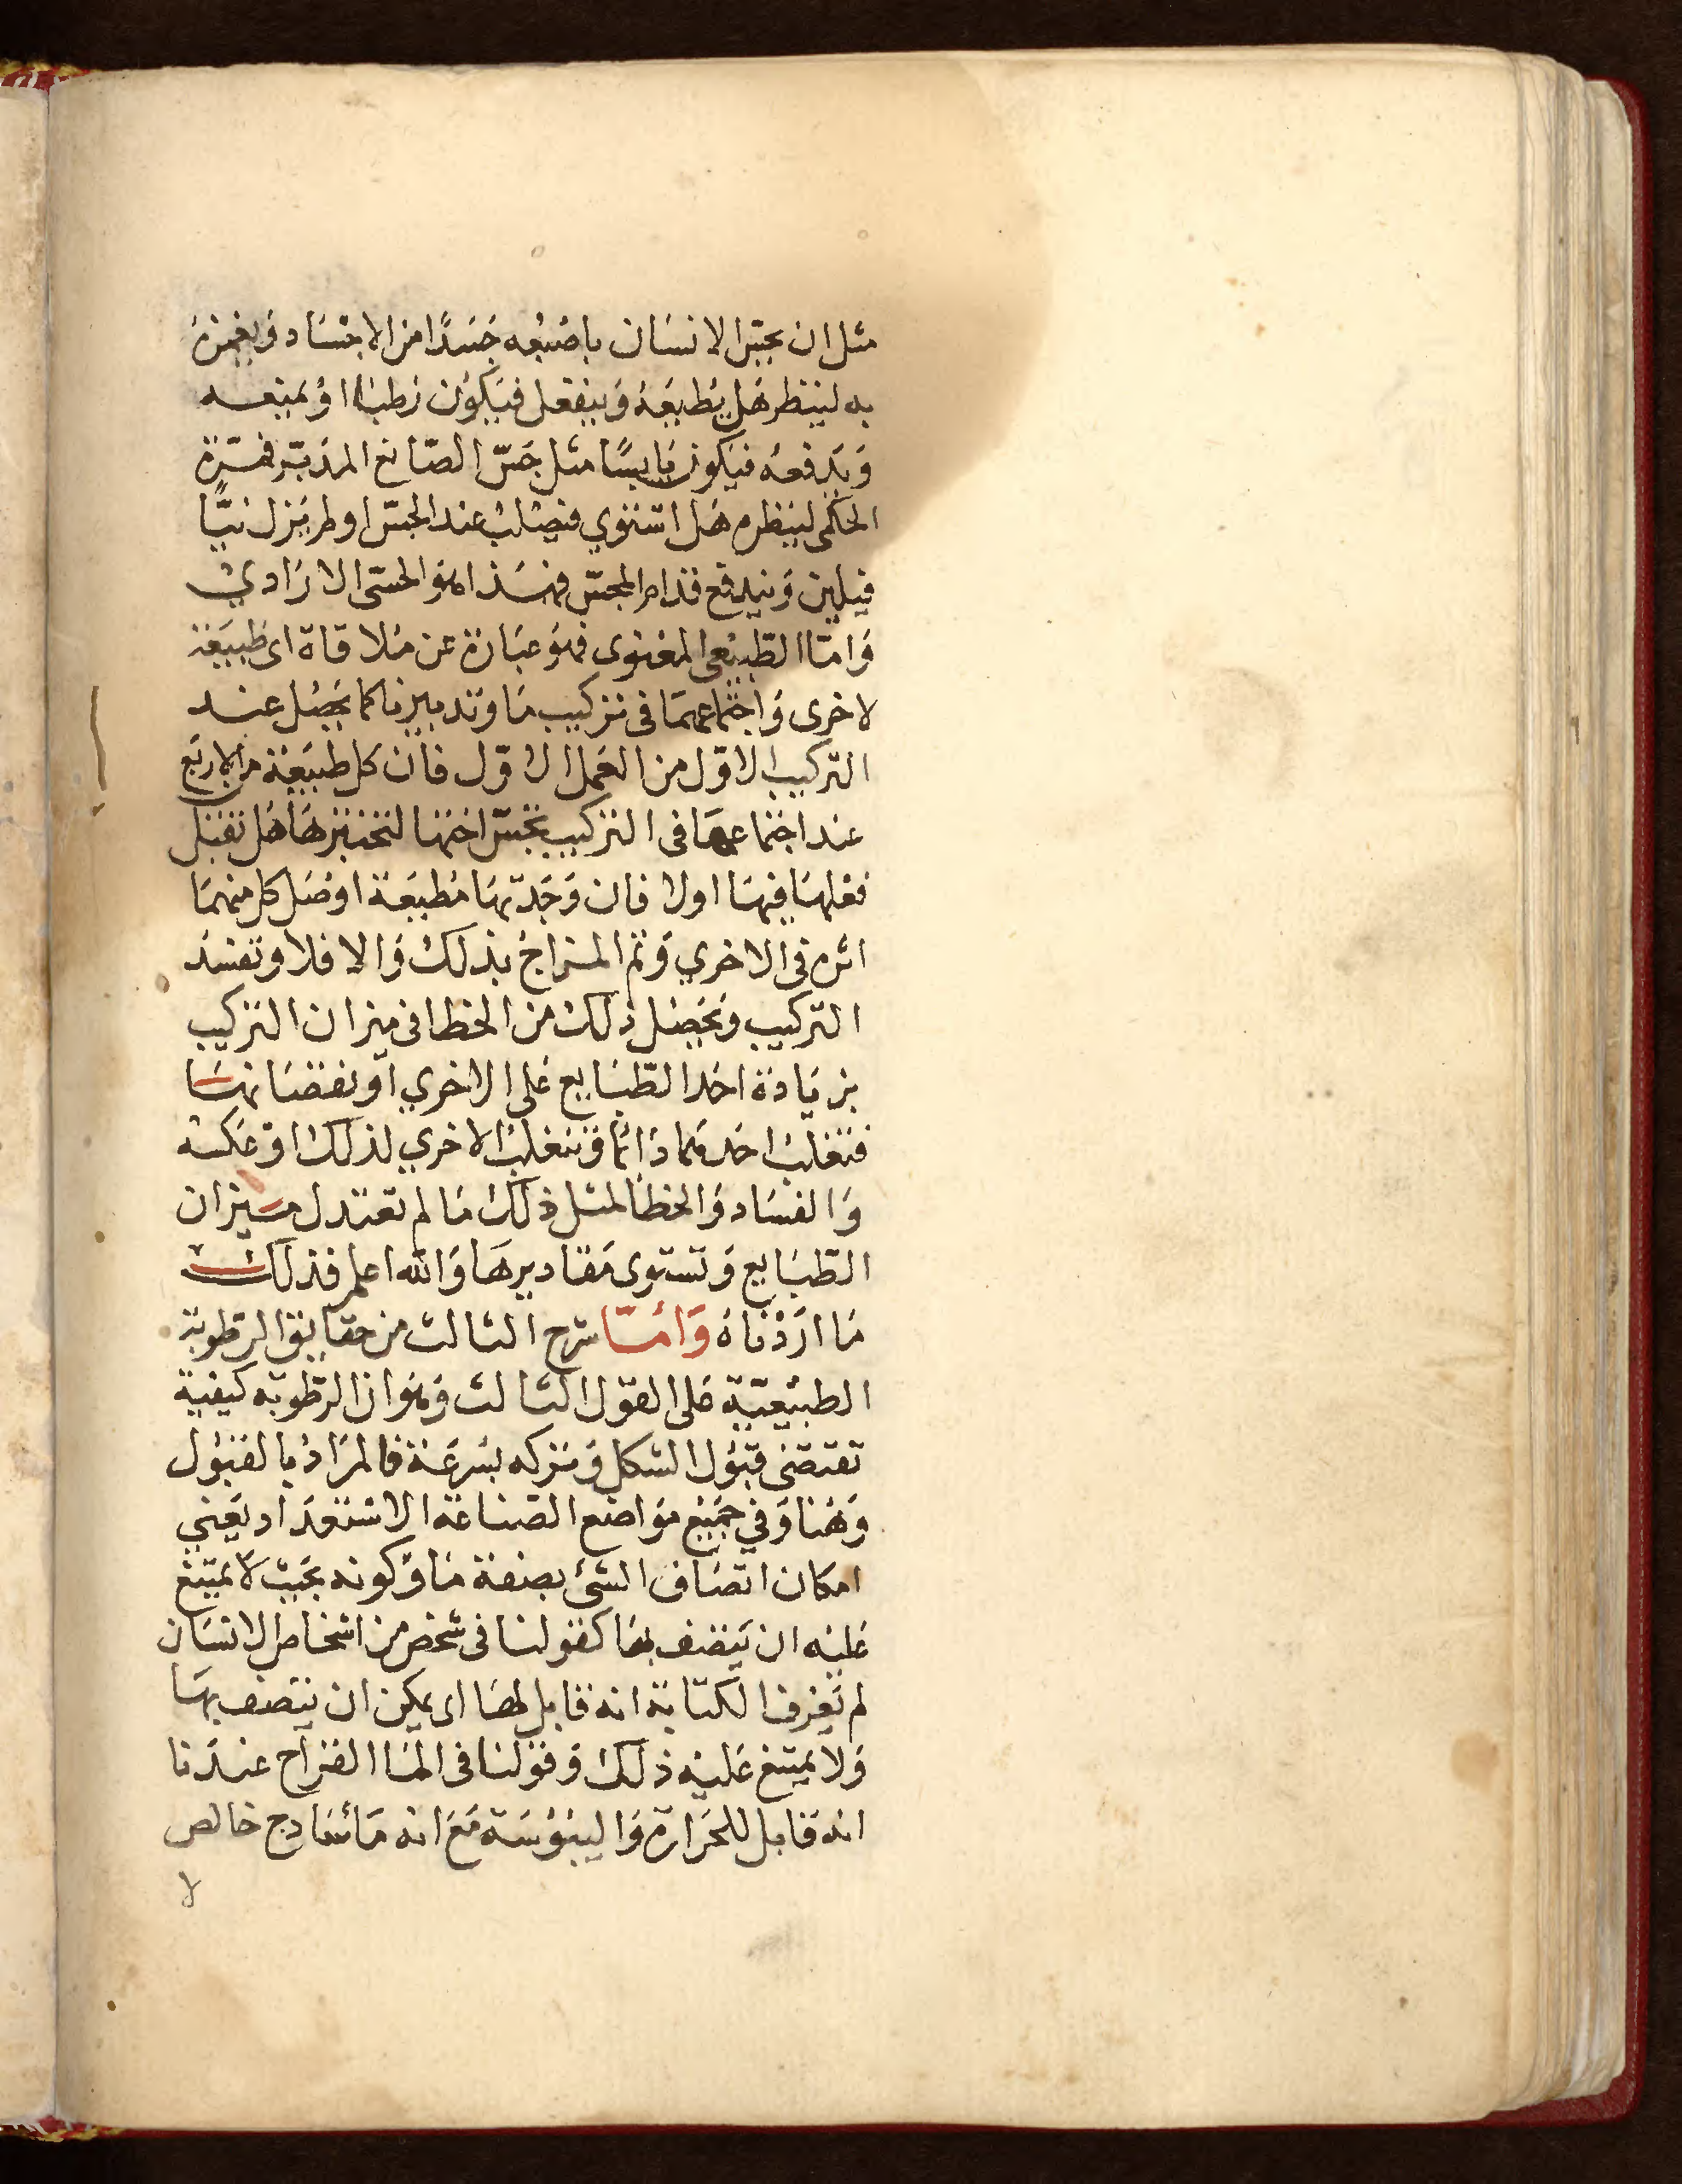 مثل ان يجس الانسان باصبعه جسدا من الاجساد ويغمزه
به لينظر هل يطيعه وينفعل فيكون رطبا او يمنعه
ويدفعه فيكون يابسا مثل جس الصانع المدبر
لينظره هل استوي فيصلب عند الجس او لم يزل نيا
فيلين ويندفع قدام المجس فهذا هو الحسى الارادي
واما الطبيعى المعنوى فهو عبارة عن ملاقاة اى طبيعة
لاخرى واجتماعهما فى تركيب ما وتدبير ما كما يحصل عند
التركيب الاول من العمل الاول فان كل طبيعة من الاربع
عند اجتماعها فى التركيب تجس اختها لتختبرها هل تقبل
فعلها فيها اولا فان وجدتها مطيعة اوصل كل منهما
اثره فى الاخري وتم المزاج بذلك والا فلا وتفسد
التركيب ويحصل ذلك من الخطا فى ميزان التركيب
بزيادة احد الطبايع على الاخري او نقصانها
فتغلب احدهما دائما وتنغلب الاخري لذلك او عكسه
والفساد والخطا لمثل ذلك ما لم تعتدل ميزان
الطبايع وتستوى مقاديرها والله اعلم فذلك
ما اردناه واما شرح الثالث من حقايق الرطوبة
الطبيعية على القول الثالث وهو ان الرطوبه كيفية
تقتضى قبول الشكل وتركه بسرعة فالمراد بالقبول
وهنا وفي جميع مواضع الصناعة الاستعداد يعني
امكان اتصاف الشئ بصفة ما وكونه بحيث لا يمتنع
عليه ان يتصف بها كقولنا فى شخص من اشخاص الانسان
لم يعرف الكتابة انه قابل لها اى يمكن ان يتصف بها
ولا يمتنع عليه ذلك وقولنا فى الما القراح عندنا
انه قابل للحرارة واليبوسة مع انه ماء سادج خالص
لا